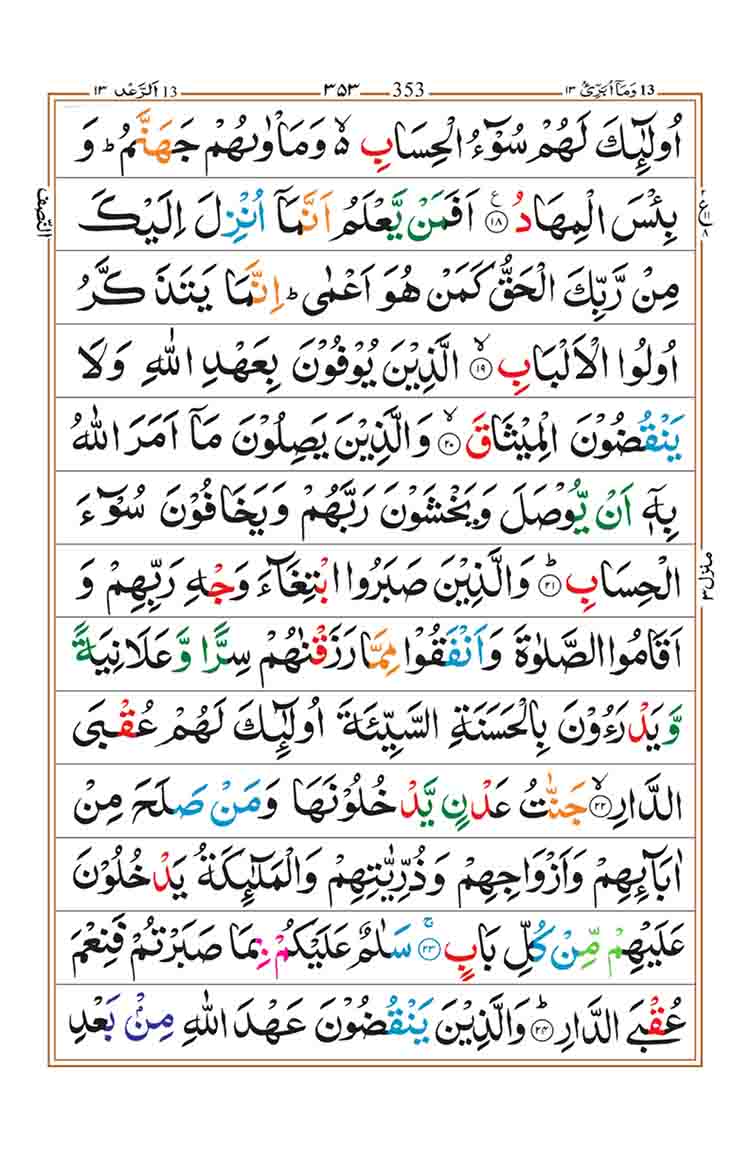 13 وَمَآ اُبَرِّئُ ١٣ 353 ٣٥٣ 13 اَلرَّعْد ١٣
اُولٰٓئِكَ لَهُمْ سُوْٓءُ الْحِسَابِ ۙ۬ وَمَاْوٰىهُمْ جَهَنَّمُ ؕ وَ
بِئْسَ الْمِهَادُ ۧ ﴿۱۸﴾ اَفَمَنْ يَّعْلَمُ اَنَّمَآ اُنْزِلَ اِلَيْكَ
مِنْ رَّبِّكَ الْحَقُّ كَمَنْ هُوَ اَعْمٰى ؕ اِنَّمَا يَتَذَكَّرُ
اُولُوا الْاَلْبَابِ ۙ ﴿۱۹﴾ الَّذِيْنَ يُوْفُوْنَ بِعَهْدِ اللّٰهِ وَلَا
يَنْقُضُوْنَ الْمِيْثَاقَ ۙ ﴿۲۰﴾ وَالَّذِيْنَ يَصِلُوْنَ مَآ اَمَرَ اللّٰهُ
بِهٖٓ اَنْ يُّوْصَلَ وَيَخْشَوْنَ رَبَّهُمْ وَيَخَافُوْنَ سُوْٓءَ
الْحِسَابِ ؕ ﴿۲۱﴾ وَالَّذِيْنَ صَبَرُوا ابْتِغَآءَ وَجْهِ رَبِّهِمْ وَ
اَقَامُوا الصَّلٰوةَ وَاَنْفَقُوْا مِمَّا رَزَقْنٰهُمْ سِرًّا وَّعَلَانِيَةً
وَّيَدْرَءُوْنَ بِالْحَسَنَةِ السَّيِّئَةَ اُولٰٓئِكَ لَهُمْ عُقْبَى
الدَّارِ ۙ ﴿۲۲﴾ جَنّٰتُ عَدْنٍ يَّدْخُلُوْنَهَا وَمَنْ صَلَحَ مِنْ
اٰبَآئِهِمْ وَاَزْوَاجِهِمْ وَذُرِّيّٰتِهِمْ وَالْمَلٰٓئِكَةُ يَدْخُلُوْنَ
عَلَيْهِمْ مِّنْ كُلِّ بَابٍ ۚ ﴿۲۳﴾ سَلٰمٌ عَلَيْكُمْ بِمَا صَبَرْتُمْ فَنِعْمَ
عُقْبَى الدَّارِ ؕ ﴿۲۴﴾ وَالَّذِيْنَ يَنْقُضُوْنَ عَهْدَ اللّٰهِ مِنْۢ بَعْدِ
النّصف
منزل ٣